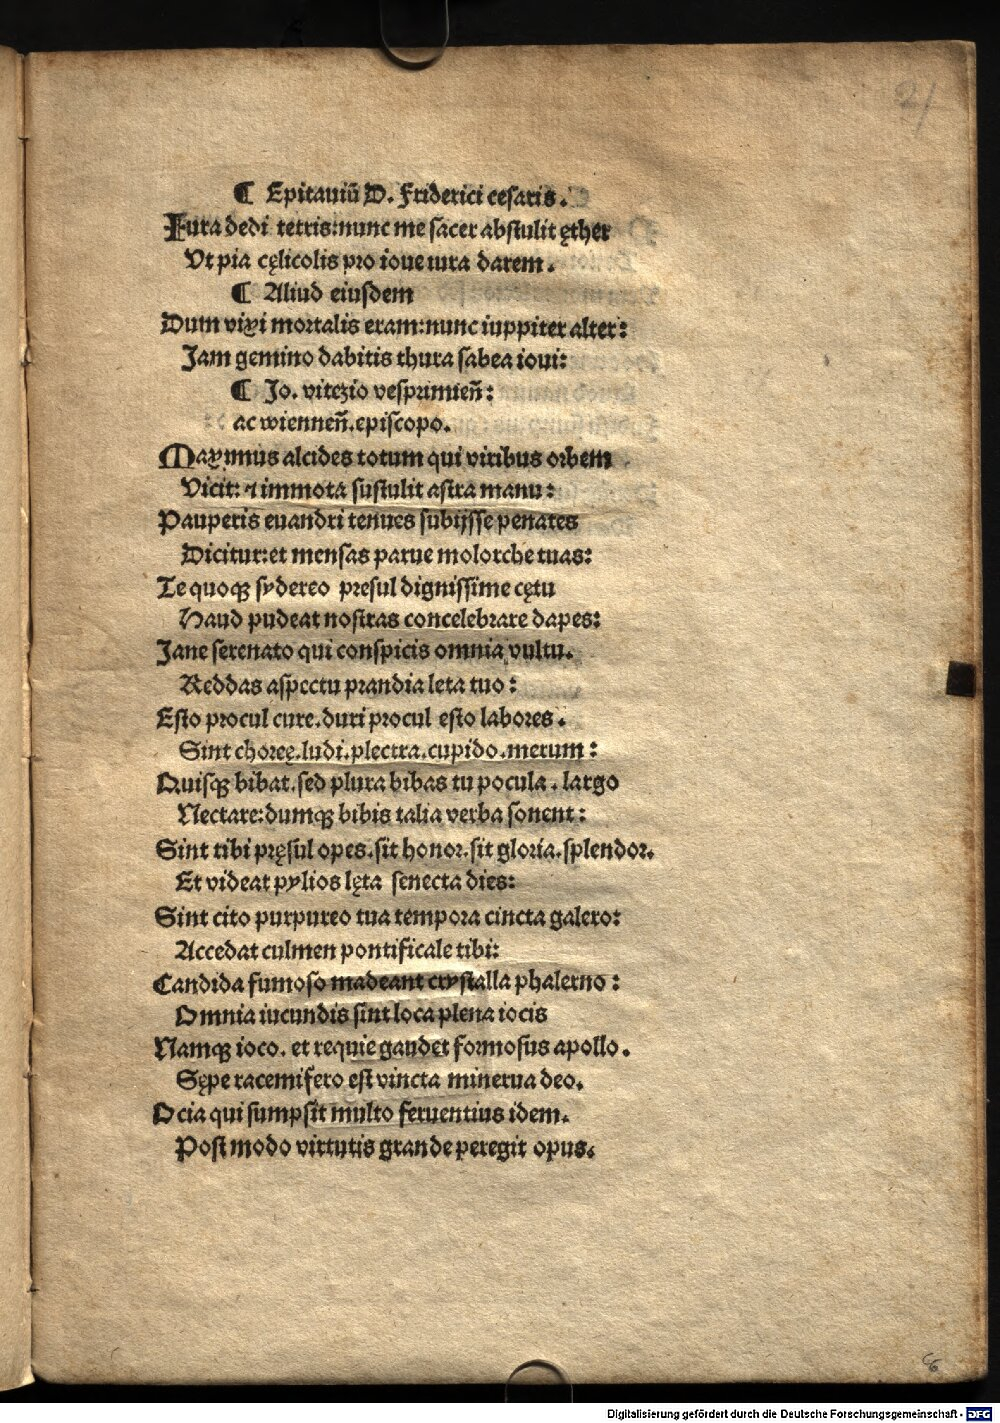 21
¶ Epitauiū D. Friderici cesaris.
Iura dedi terris: nunc me sacer abstulit ęther
Vt pia cęlicolis pro ioue iura darem.
¶ Aliud eiusdem
Dum vixi mortalis eram: nunc iuppiter alter:
Jam gemino dabitis thura sabea ioui:
¶ Jo. vitezio vesprimieñ:
ac wienneñ. episcopo.
Maximus alcides totum qui viribus orbem
Vicit: ⁊ immota sustulit astra manu:
Pauperis euandri tenues subijsse penates
Dicitur: et mensas parue molorche tuas:
Te quoqꝫ sydereo presul dignissime cętu
Haud pudeat nostras concelebrare dapes:
Jane serenato qui conspicis omnia vultu.
Reddas aspectu prandia leta tuo:
Esto procul cure. duri procul esto labores.
Sint choreę. ludi. plectra. cupido. merum:
Quisqꝫ bibat. sed plura bibas tu pocula. largo
Nectare: dumqꝫ bibis talia verba sonent:
Sint tibi pręsul opes. sit honor. sit gloria. splendor.
Et videat pylios lęta senecta dies:
Sint cito purpureo tua tempora cincta galero:
Accedat culmen pontificale tibi:
Candida fumoso madeant crystalla phalerno:
Omnia iucundis sint loca plena iocis
Namqꝫ ioco. et requie gaudet formosus apollo.
Sępe racemifero est vincta minerua deo.
Ocia qui sumpsit multo feruentius idem.
Post modo virtutis grande peregit opus.
Digitalisierung gefördert durch die Deutsche Forschungsgemeinschaft - DFG